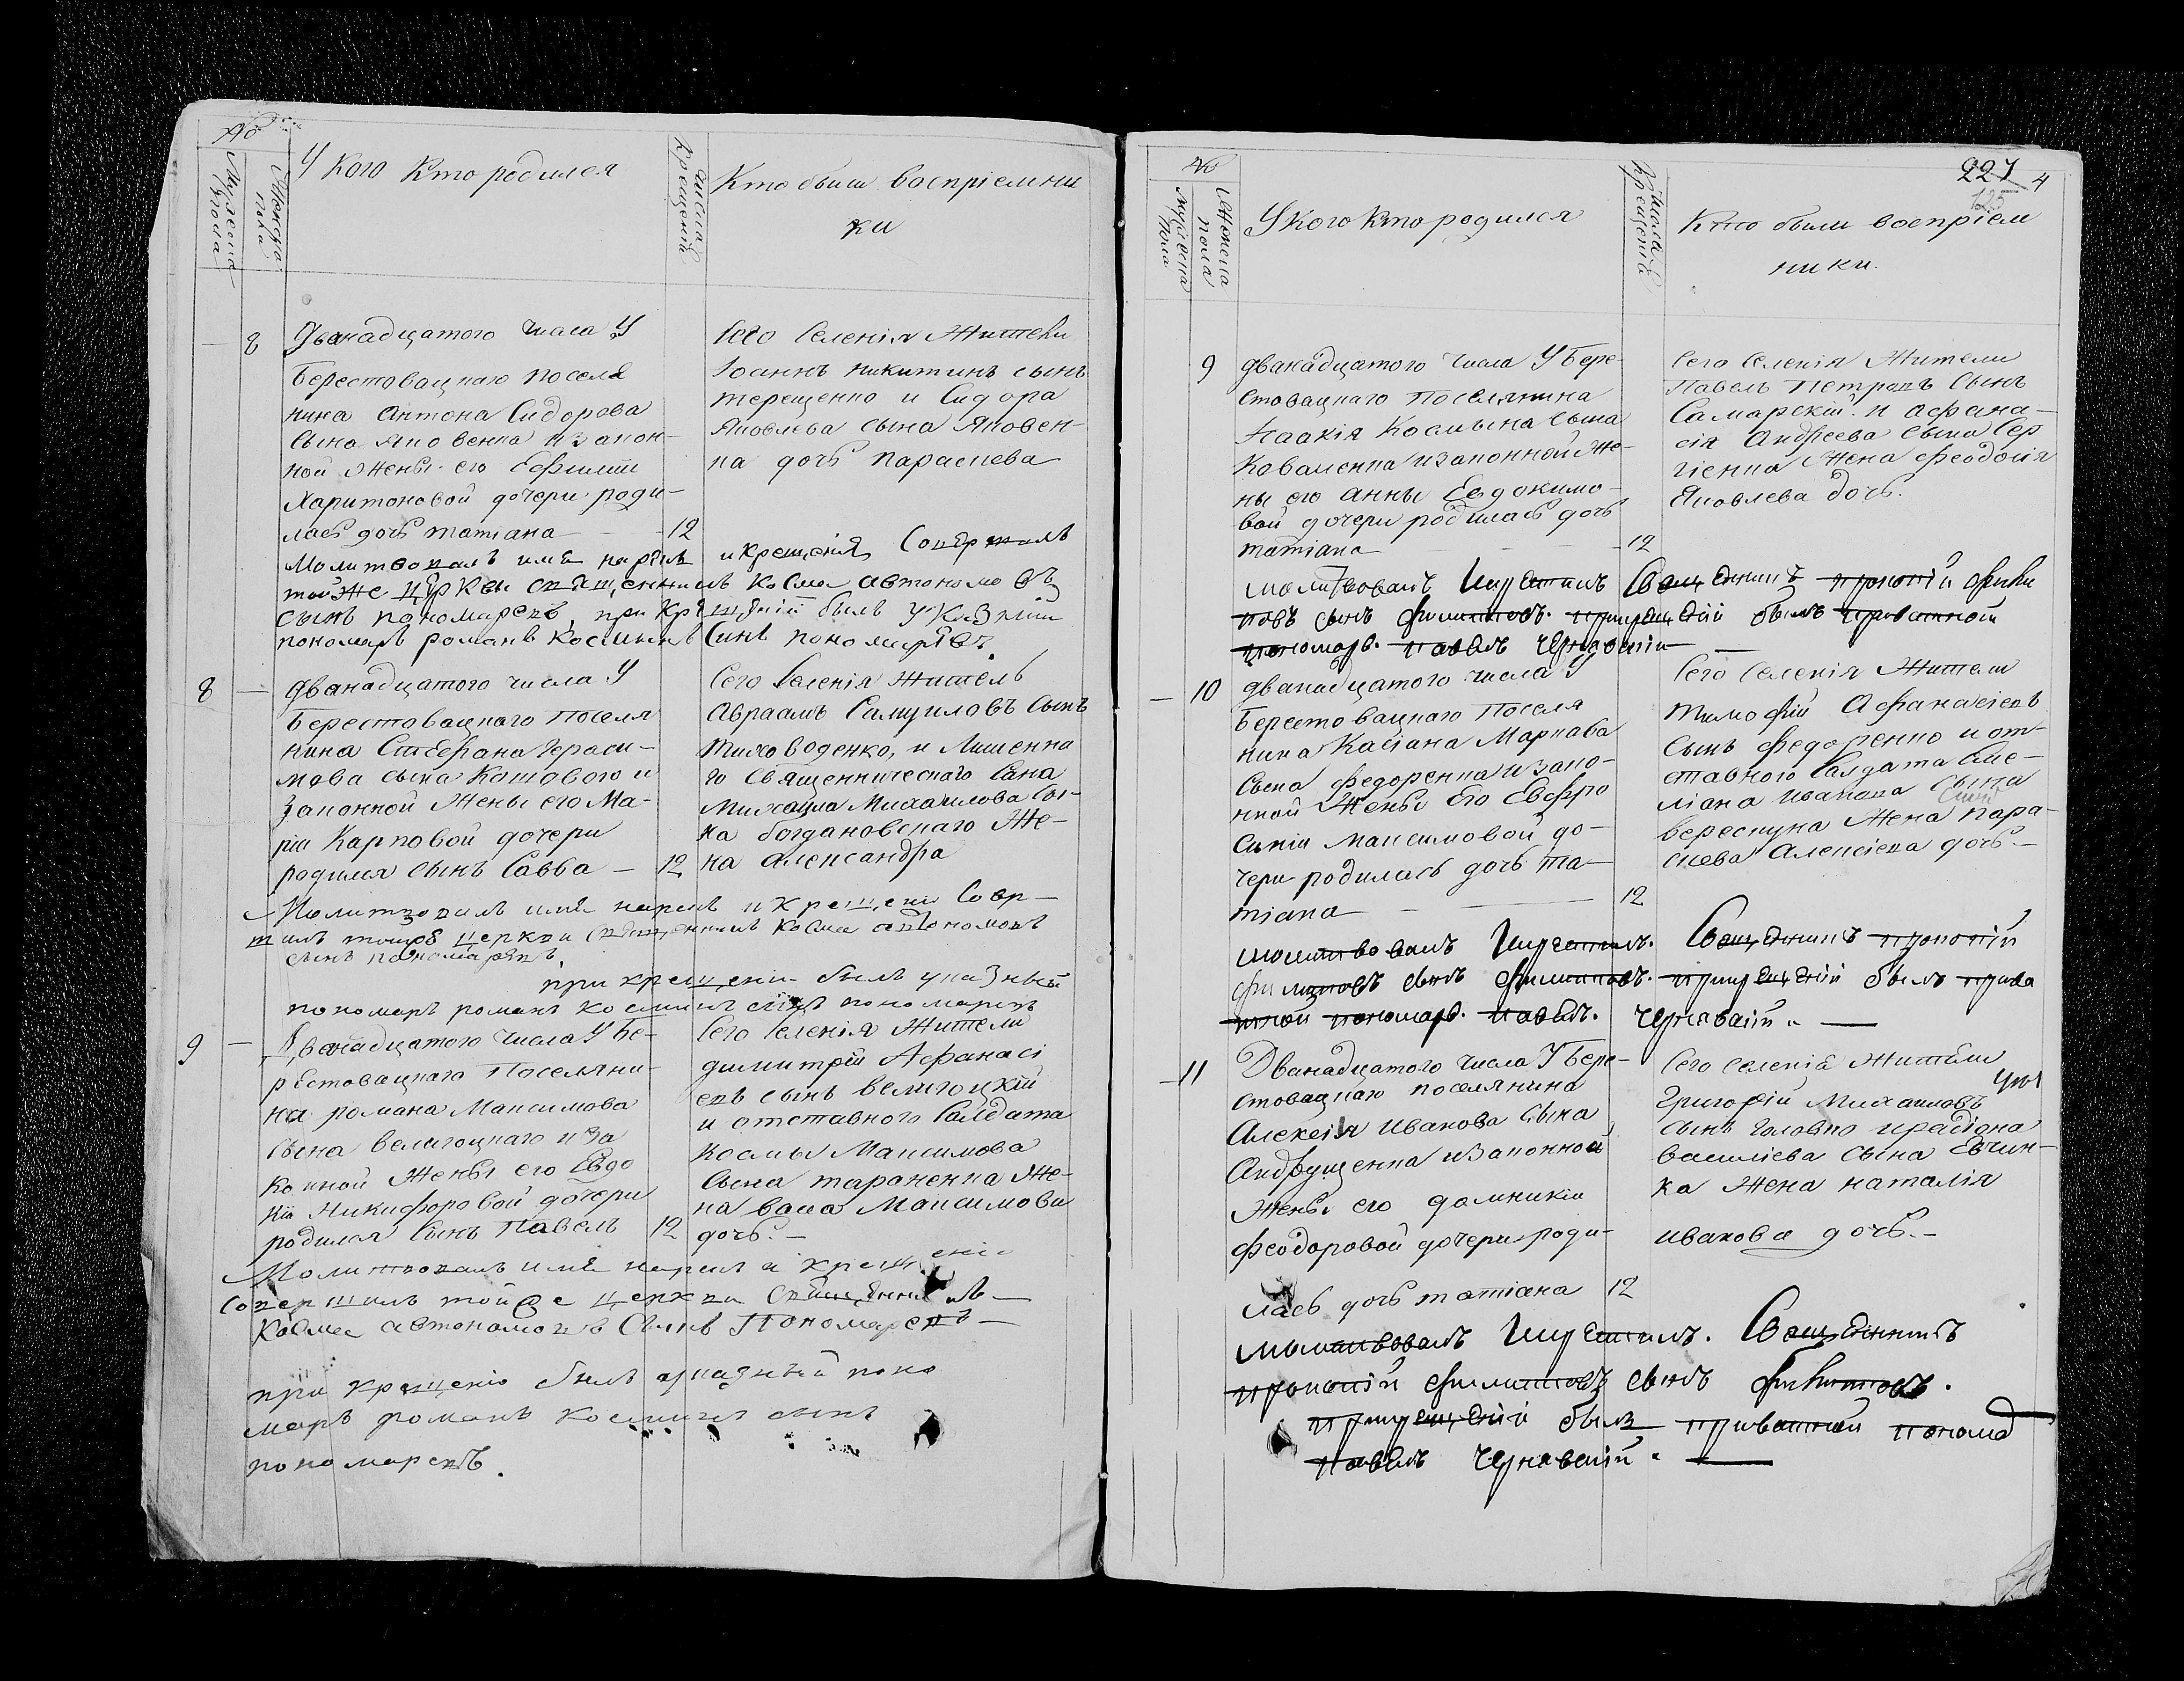 №
Мужеска пола
Женска пола
У кого кто родился
Числа крещенiй
Кто были воспрiемни
ки
8
Дванадцатого числа У
Берестовацкаго поселя
нина Антона Сидорова
Сына Яковенка и закон-
ной жены его Ефимiи
Харитоновой дочери роди-
лась дочь татiана 12
Сего Селенiя Жители
Iоаннъ никитинъ сынъ
терещенко и Сидора
Яковлева Сына Яковен-
ка дочь параскева
Молитвовалъ имя нарекъ и крещенiя Совершилъ
тойже церкви священникъ косма автономовъ
сынъ пономаревъ, при крещенiи былъ указный
пономарь романъ Косминъ Синъ пономаревъ
8
дванадцатого числа У
Берестовацкаго Поселя
нина Стефана Гераси-
мова сына Кошового и
Законной жены его Ма-
рiи Карповой дочери
родился сынъ Савва — 12
Сего Селенiя житель
Авраамъ Самуиловъ Сынъ
Тиховоденко, и Лишенна
го Священническаго Сана
Михаила Михаилова Сы-
на богдановскаго Же-
на александра
Молитвовалъ имя нарекъ и крещенiе Совер—
шилъ тойже церкви священникъ косма автономовъ
сынъ пономаревъ.
при крещенiи былъ указный
пономарь романъ косминъ сынъ пономаревъ
9
Дванадцатого числа У Бе-
рестовацкаго Поселяни-
на романа Максимова
Сына велигоцкаго и за
конной жены его Евдо
кiи Никифоровой дочери
родился Сынъ Павелъ 12
Сего Селенiя Жители
димитрiй Афанасi
евъ сынъ велигоцкiй
и отставного Салдата
космы Максимова
Сына тараненка Же-
на васа Максимова
дочь. —
Молитвовалъ имя нарекъ и крещенiе
Совершилъ тойже церкви священникъ—
Косма автономовъ Синъ Пономаревъ—
при крещенiи былъ указный поно
марь романъ косминъ сынъ
пономаревъ.
227
4
125
№
Мужеска пола
Женска пола
У кого кто родился
Числа крещенiя
Кто были воспрiем
ники.
9
дванадцатого числа У Бере-
стовацкаго Поселянина
Исаакiя Космына сына
Коваленка и законной Же-
ны его анны Евдокимо-
вой дочери родилась дочь
татiана 12
Сего Селенiя Жители
Павелъ Петровъ Сынъ
Самарскiй и афана-
сiя Андреева Сына Сер
гiенка Жена феодосiя
Яковлева дочь.
молитвовалъ Икрестилъ Священникъ прокопiй филип
повъ сынъ филиповъ. прикрещенiи былъ приватной
пономарь. павелъ Чернавскiй —
10
дванадцатого числа У
Берестовацкаго Поселя
нина Касiана Маркава
Сына федоренка и зако-
нной Жены Его Евфро
синiи максимовой до-
чери родилась дочь та-
тiана 12
Сего Селенiя Жители
тимофiй Афанасiевъ
Сынъ федоренко и от-
ставного Салдата Еме-
лiана иванова сына
верескуна Жена пара-
скева Алексiева дочь. —
молитвовалъ Икрестилъ. Священникъ прокопiй
филиповъ сынъ филиповъ. прикрещенiй былъ прива
тной пономарь. павелъ. Чернавскiй. —
11
Дванадцатого числа У Бере-
стовацкаго поселянина
Алексiя Иванова Сына
Андрущенка и законной
жены его домникiи
феодоровой дочери роди-
лась дочь татiана 12
Сего селенiя жители
Григорiй Михаиловъ
сынъ головко и расiона
василiева Сына Евчин-
ка жена наталiя
иванова дочь. —
молитвовалъ Икрестилъ. Священникъ
прокопiй филиповъ сынъ филиповъ.
прикрещенiй былъ приватной поном
павелъ Чернавскiй. —